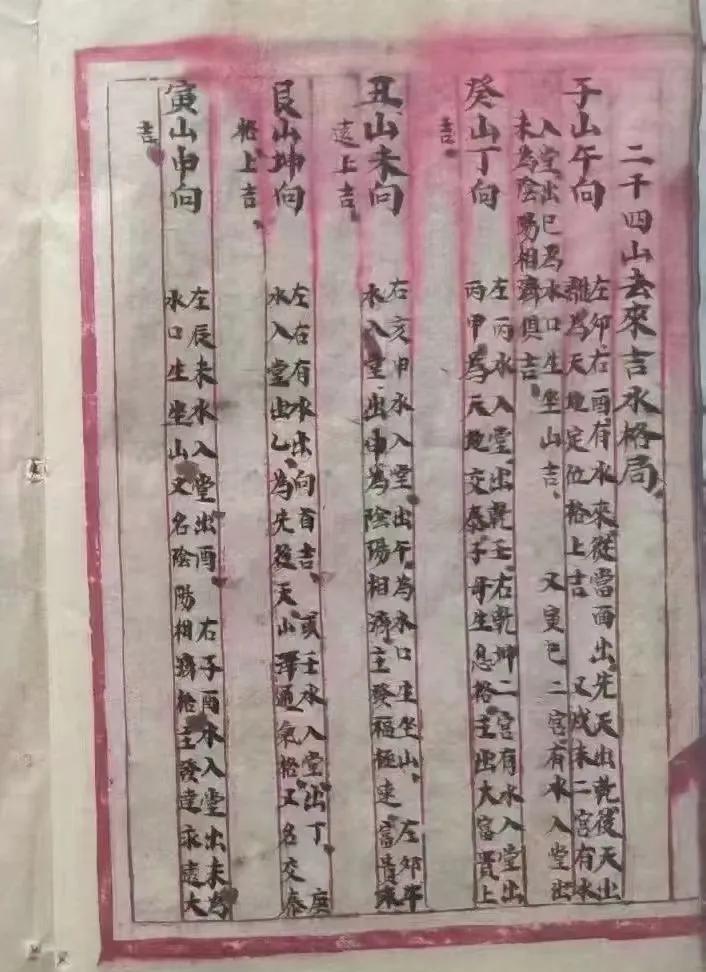 二十四山去來吉水格局
子山午向
左卯右酉有水來從當面出先天出乾後天出
離為天地定位格上吉 又戌未二宮有水
入堂出巳為水口生坐山吉 又寅巳二宮有水入堂出
未為陰陽相濟俱吉
癸山丁向
左丙水入堂出乾壬右乾坤二宮有水入堂出
丙甲為天地交泰子母生息格主出大富貴上
吉
丑山未向
右亥申水入堂出午為水口生坐山 左卯午
水入堂出申為陰陽相濟主發福極速富貴永
遠上吉
艮山坤向
左右有水出向首吉 或壬水入堂出丁 庚
水入堂出乙為先後天山澤通氣格又名交泰
格上吉
寅山申向
左辰未水入堂出酉 右子酉水入堂出未為
水口生坐山又名陰陽相濟格主發達永遠大
吉